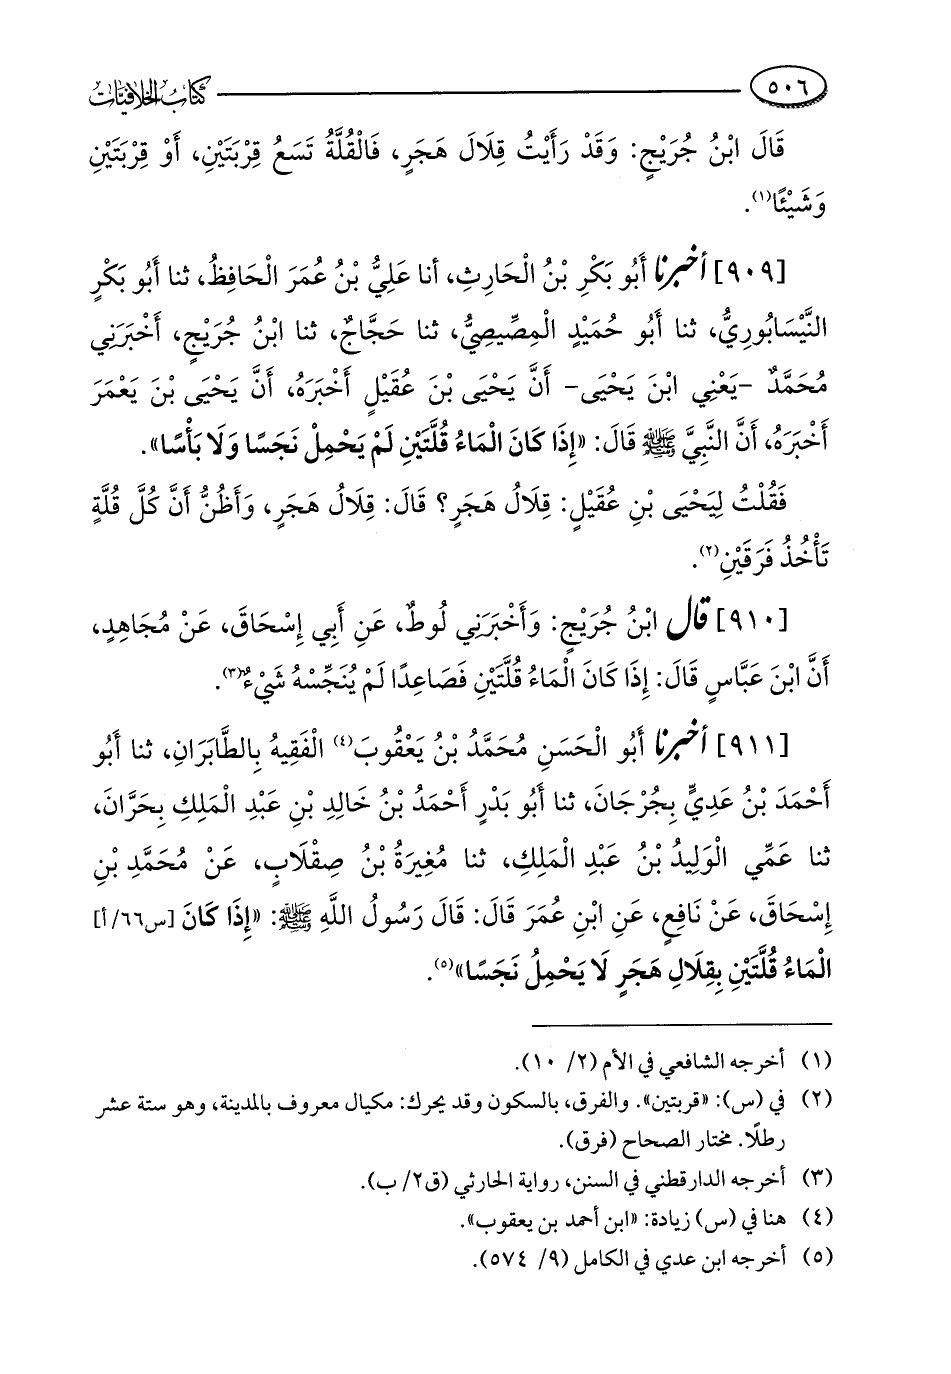 ٥٠٦ كتاب الخلافيات
قَالَ ابْنُ جُرَيْجٍ: وَقَدْ رَأَيْتُ قِلَالَ هَجَرٍ، فَالْقُلَّةُ تَسَعُ قِرْبَتَيْنِ، أَوْ قِرْبَتَيْنِ
وَشَيْئًا(١).
[٩٠٩] أخبرنا أَبُو بَكْرِ بْنُ الْحَارِثِ، أنا عَلِيُّ بْنُ عُمَرَ الْحَافِظُ، ثنا أَبُو بَكْرٍ
النَّيْسَابُورِيُّ، ثنا أَبُو حُمَيْدٍ الْمِصِّيصِيُّ، ثنا حَجَّاجٌ، ثنا ابْنُ جُرَيْجٍ، أَخْبَرَنِي
مُحَمَّدٌ -يَعْنِي ابْنَ يَحْيَى- أَنَّ يَحْيَى بْنَ عُقَيْلٍ أَخْبَرَهُ، أَنَّ يَحْيَى بْنَ يَعْمَرَ
أَخْبَرَهُ، أَنَّ النَّبِيَّ ﷺ قَالَ: «إِذَا كَانَ الْمَاءُ قُلَّتَيْنِ لَمْ يَحْمِلْ نَجَسًا وَلَا بَأْسًا».
فَقُلْتُ لِيَحْيَى بْنِ عُقَيْلٍ: قِلَالُ هَجَرٍ؟ قَالَ: قِلَالُ هَجَرٍ، وَأَظُنُّ أَنَّ كُلَّ قُلَّةٍ
تَأْخُذُ فَرَقَيْنِ(٢).
[٩١٠] قال ابْنُ جُرَيْجٍ: وَأَخْبَرَنِي لُوطٌ، عَنِ أَبِي إِسْحَاقَ، عَنْ مُجَاهِدٍ،
أَنَّ ابْنَ عَبَّاسٍ قَالَ: إِذَا كَانَ الْمَاءُ قُلَّتَيْنِ فَصَاعِدًا لَمْ يُنَجِّسْهُ شَيْءٌ(٣).
[٩١١] أخبرنا أَبُو الْحَسَنِ مُحَمَّدُ بْنُ يَعْقُوبَ(٤) الْفَقِيهُ بِالطَّابَرَانِ، ثنا أَبُو
أَحْمَدَ بْنُ عَدِيٍّ بِجُرْجَانَ، ثنا أَبُو بَدْرٍ أَحْمَدُ بْنُ خَالِدِ بْنِ عَبْدِ الْمَلِكِ بِحَرَّانَ،
ثنا عَمِّي الْوَلِيدُ بْنُ عَبْدِ الْمَلِكِ، ثنا مُغِيرَةُ بْنُ صِقْلَابٍ، عَنْ مُحَمَّدِ بْنِ
إِسْحَاقَ، عَنْ نَافِعٍ، عَنِ ابْنِ عُمَرَ قَالَ: قَالَ رَسُولُ اللَّهِ ﷺ: «إِذَا كَانَ [س٦٦/أ]
الْمَاءُ قُلَّتَيْنِ بِقِلَالِ هَجَرٍ لَا يَحْمِلُ نَجَسًا»(٥).
(١) أخرجه الشافعي في الأم (٢/ ١٠).
(٢) في (س): «قربتين». والفرق، بالسكون وقد يحرك: مكيال معروف بالمدينة، وهو ستة عشر
رطلًا. مختار الصحاح (فرق).
(٣) أخرجه الدارقطني في السنن، رواية الحارثي (ق٢/ ب).
(٤) هنا في (س) زيادة: «ابن أحمد بن يعقوب».
(٥) أخرجه ابن عدي في الكامل (٩/ ٥٧٤).